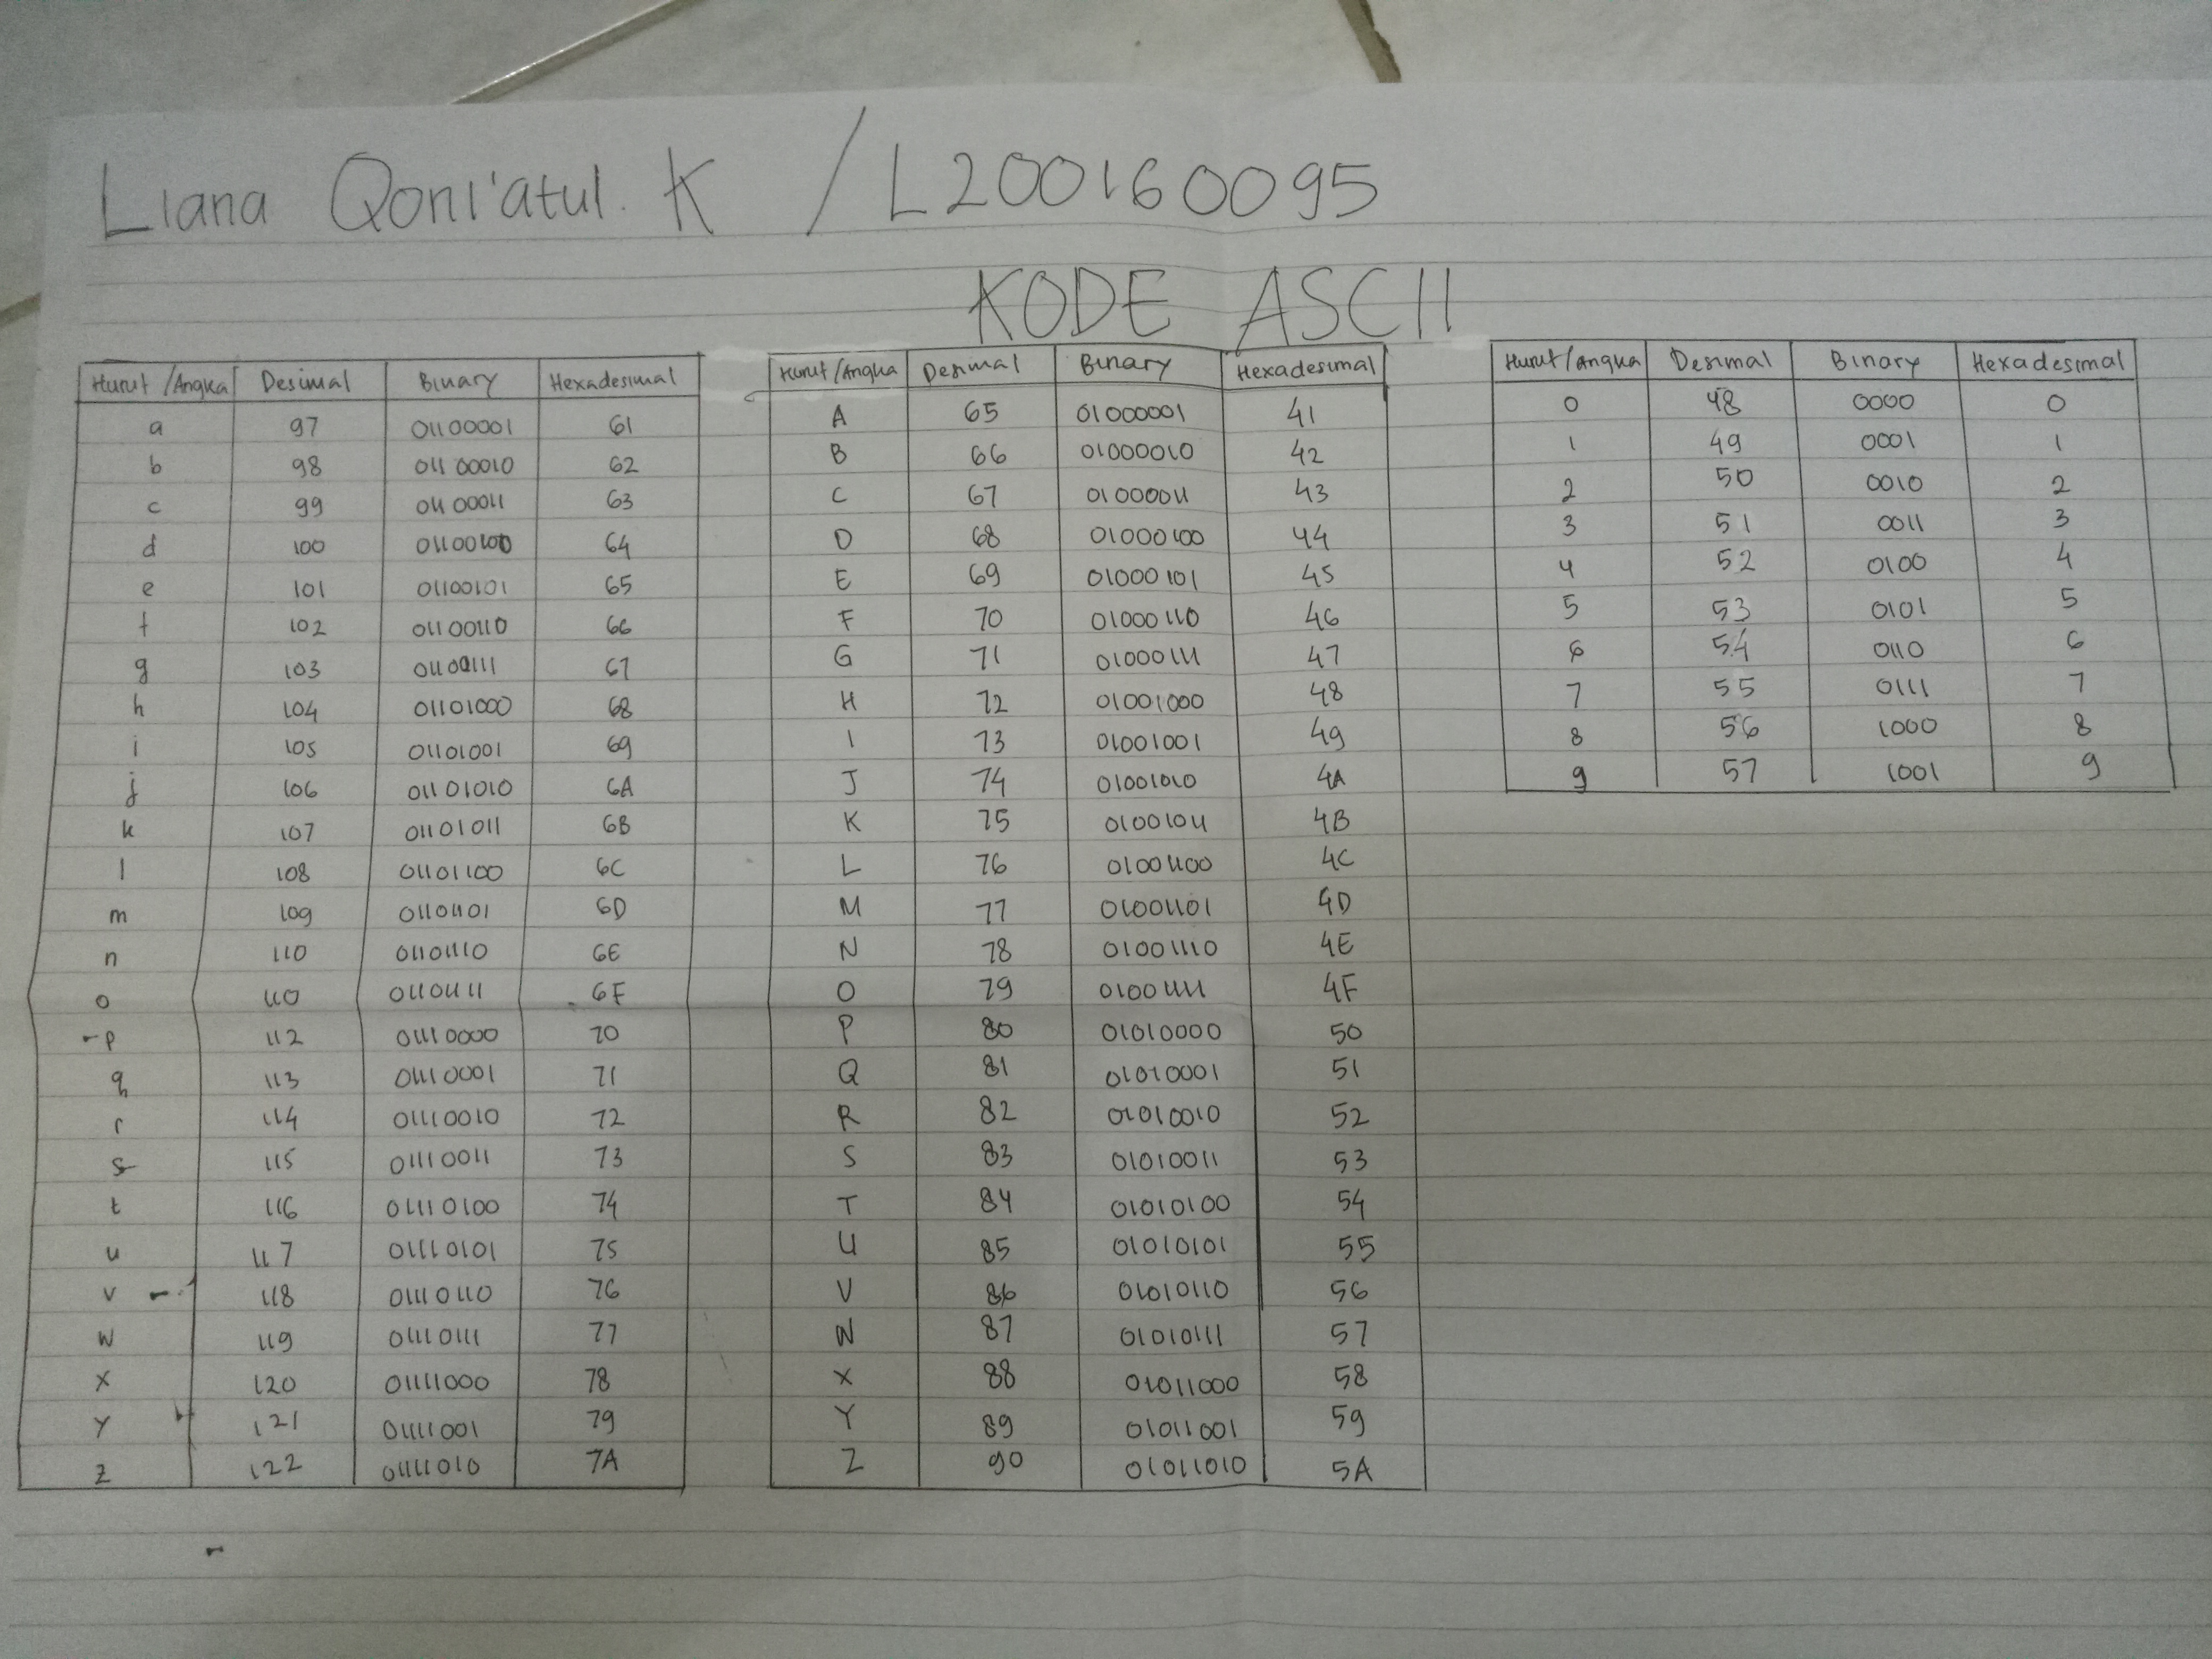 Liana Qoni'atul. K / L200160095
KODE ASCII
Huruf /Angka Desimal Binary Hexadesimal
a 97 01100001 61
b 98 01100010 62
c 99 01100011 63
d 100 01100100 64
e 101 01100101 65
f 102 01100110 66
g 103 01100111 67
h 104 01101000 68
i 105 01101001 69
j 106 01101010 6A
k 107 01101011 6B
l 108 01101100 6C
m 109 01101101 6D
n 110 01101110 6E
o 110 01101111 6F
p 112 01110000 70
q 113 01110001 71
r 114 01110010 72
s 115 01110011 73
t 116 01110100 74
u 117 01110101 75
v 118 01110110 76
w 119 01110111 77
x 120 01111000 78
y 121 01111001 79
z 122 01111010 7A
Huruf /Angka Desimal Binary Hexadesimal
A 65 01000001 41
B 66 01000010 42
C 67 01000011 43
D 68 01000100 44
E 69 01000101 45
F 70 01000110 46
G 71 01000111 47
H 72 01001000 48
I 73 01001001 49
J 74 01001010 4A
K 75 01001011 4B
L 76 01001100 4C
M 77 01001101 4D
N 78 01001110 4E
O 79 01001111 4F
P 80 01010000 50
Q 81 01010001 51
R 82 01010010 52
S 83 01010011 53
T 84 01010100 54
U 85 01010101 55
V 86 01010110 56
W 87 01010111 57
X 88 01011000 58
Y 89 01011001 59
Z 90 01011010 5A
Huruf /Angka Desimal Binary Hexadesimal
0 48 0000 0
1 49 0001 1
2 50 0010 2
3 51 0011 3
4 52 0100 4
5 53 0101 5
6 54 0110 6
7 55 0111 7
8 56 1000 8
9 57 1001 9